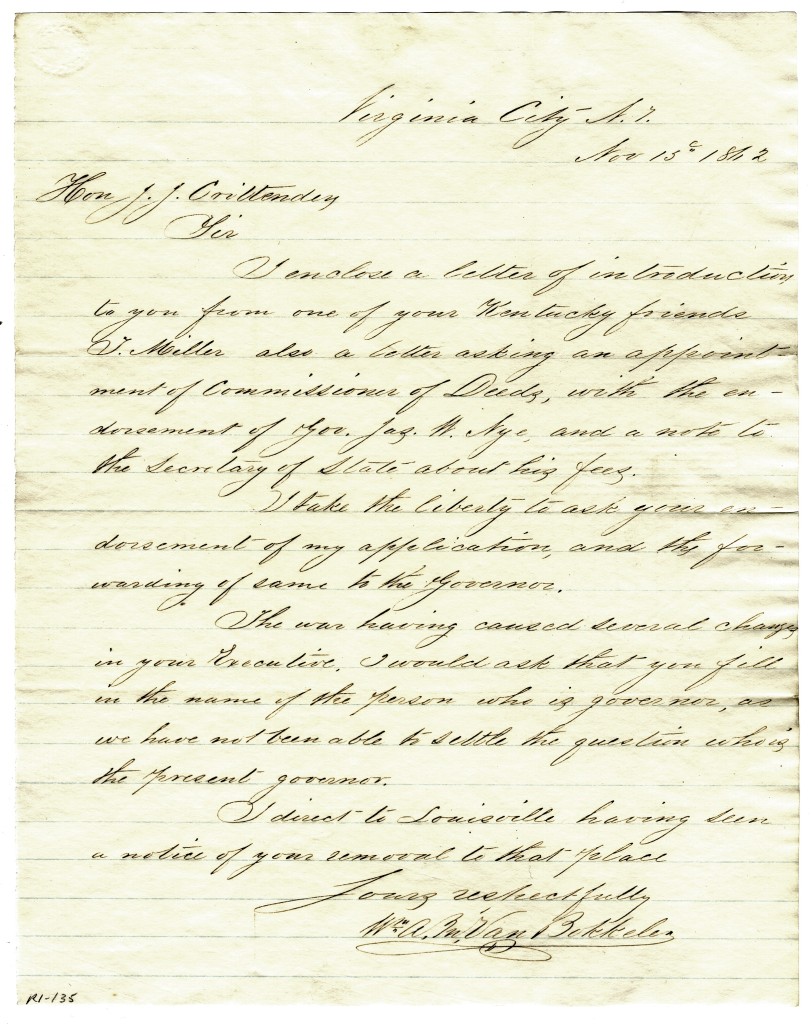 Virginia City N. T.
Nov 15th 1862
Hon J. J. Crittenden
Sir
I enclose a letter of introduction
to you from one of your Kentucky friends
T. Miller also a letter asking an appoint-
ment of Commissioner of Deeds, with the en-
dorsement of Gov. Jas. W. Nye, and a note to
the Secretary of State about his fees.
I take the liberty to ask your en-
dorsement of my application, and the for-
warding of same to the Governor.
The war having caused several changes
in your Executive. I would ask that you fill
in the name of the person who is governor, as
we have not been able to settle the question who is
the present governor.
I direct to Louisville having seen
a notice of your removal to that place
Yours respectfully
Wm. A. M. Van Bokkelen
R1-135